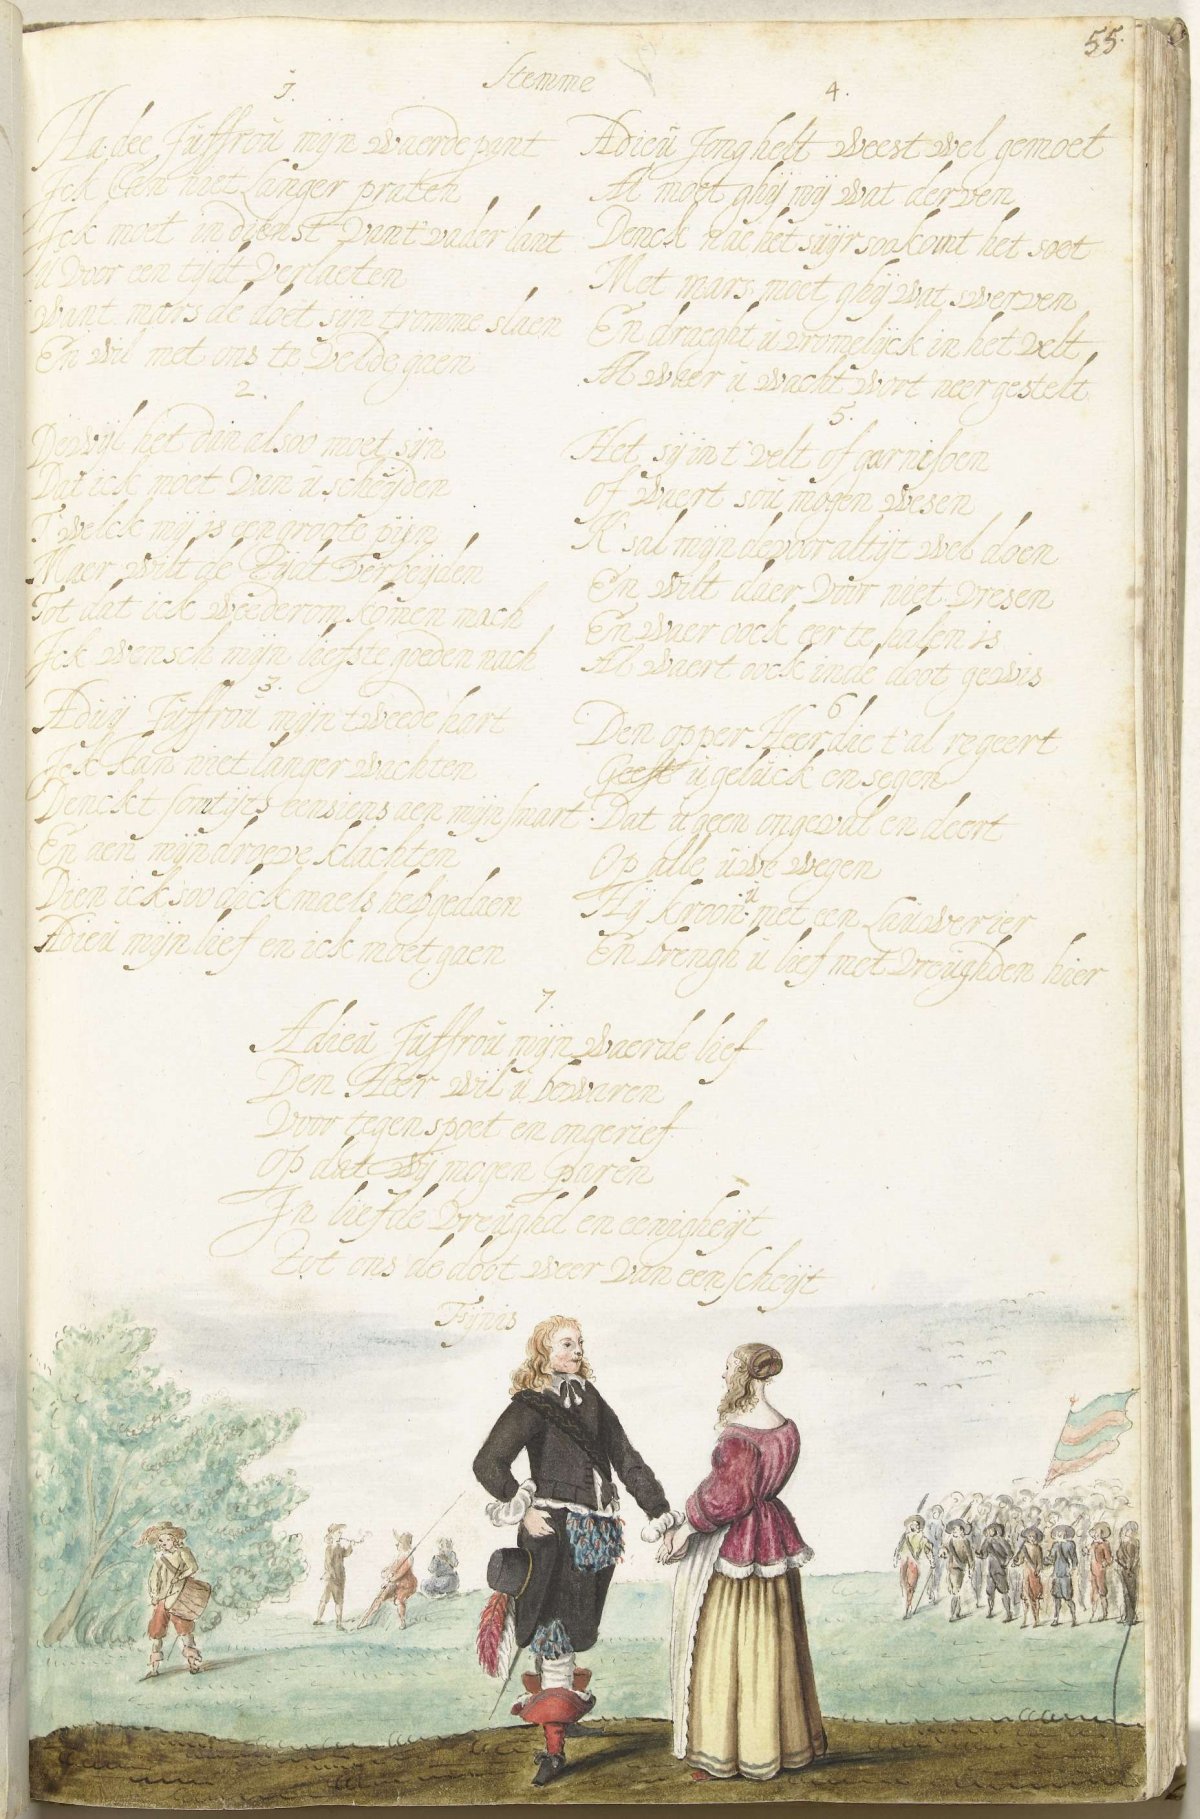 55.
Stemme
1.
Ha dee Juffroú mijn waerde pant
Ick Can niet langer praten
Ick moet in dienst vant vader lant
ú voor een tijdt verlaeten
want mars de doet sijn tromme slaen
En wil met ons te velde gaen
2.
Dewijl het dan alsoo moet sijn
Dat ick moet van ú scheijden
T welck mij is een groote pijn
Maer wilt de Tijdt verbeijden
Tot dat ick weederom komen mach
Ick wensch mijn liefste goeden nach
3.
Aduij Juffroú mijn tweede hart
Ick kan niet langer wachten
Denckt somtijts eensiens aen mijn smart
En aen mijn droeve klachten
Dien ick soo dick maels heb gedaen
Adieú mijn lief en ick moet gaen
4.
Adieú Jonghelt weest wel gemoet
Al moet ghij mij wat derven
Denck nae het súijr soo komt het soet
Met mars moet ghij wat swerven
En draeght ú vromelijck in het velt
Al waer ú wacht wort neer gestelt
5.
Het sij in t velt of garnisoen
of waert soú mogen wesen
K sal mijn devoor altijt wel doen
En wilt daer voor niet vresen
En waer oock eer te halen is
Al waert oock inde doot gewis
6
Den opper Heer die t'al regeert
Geeft ú gelúck en segen
Dat ú geen ongeval en deert
Op alle úwe wegen
Hij kroon ú met een Laúwerier
En brengh ú lief met vreúghden hier
7.
Adieú Júffroú mijn waerde lief
Den Heer wil ú bewaren
Voor tegenspoet en ongerief
Op dat wij mogen paren
In liefde vreúghd en eenigheijt
Tot ons de doot weer van een scheijt
Fijnis